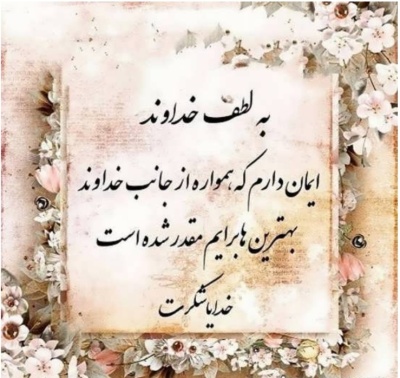 به لطف خداوند
ایمان دارم که همواره از جانب خداوند
بهترین ها برایم مقدر شده است
خدایا شکرت